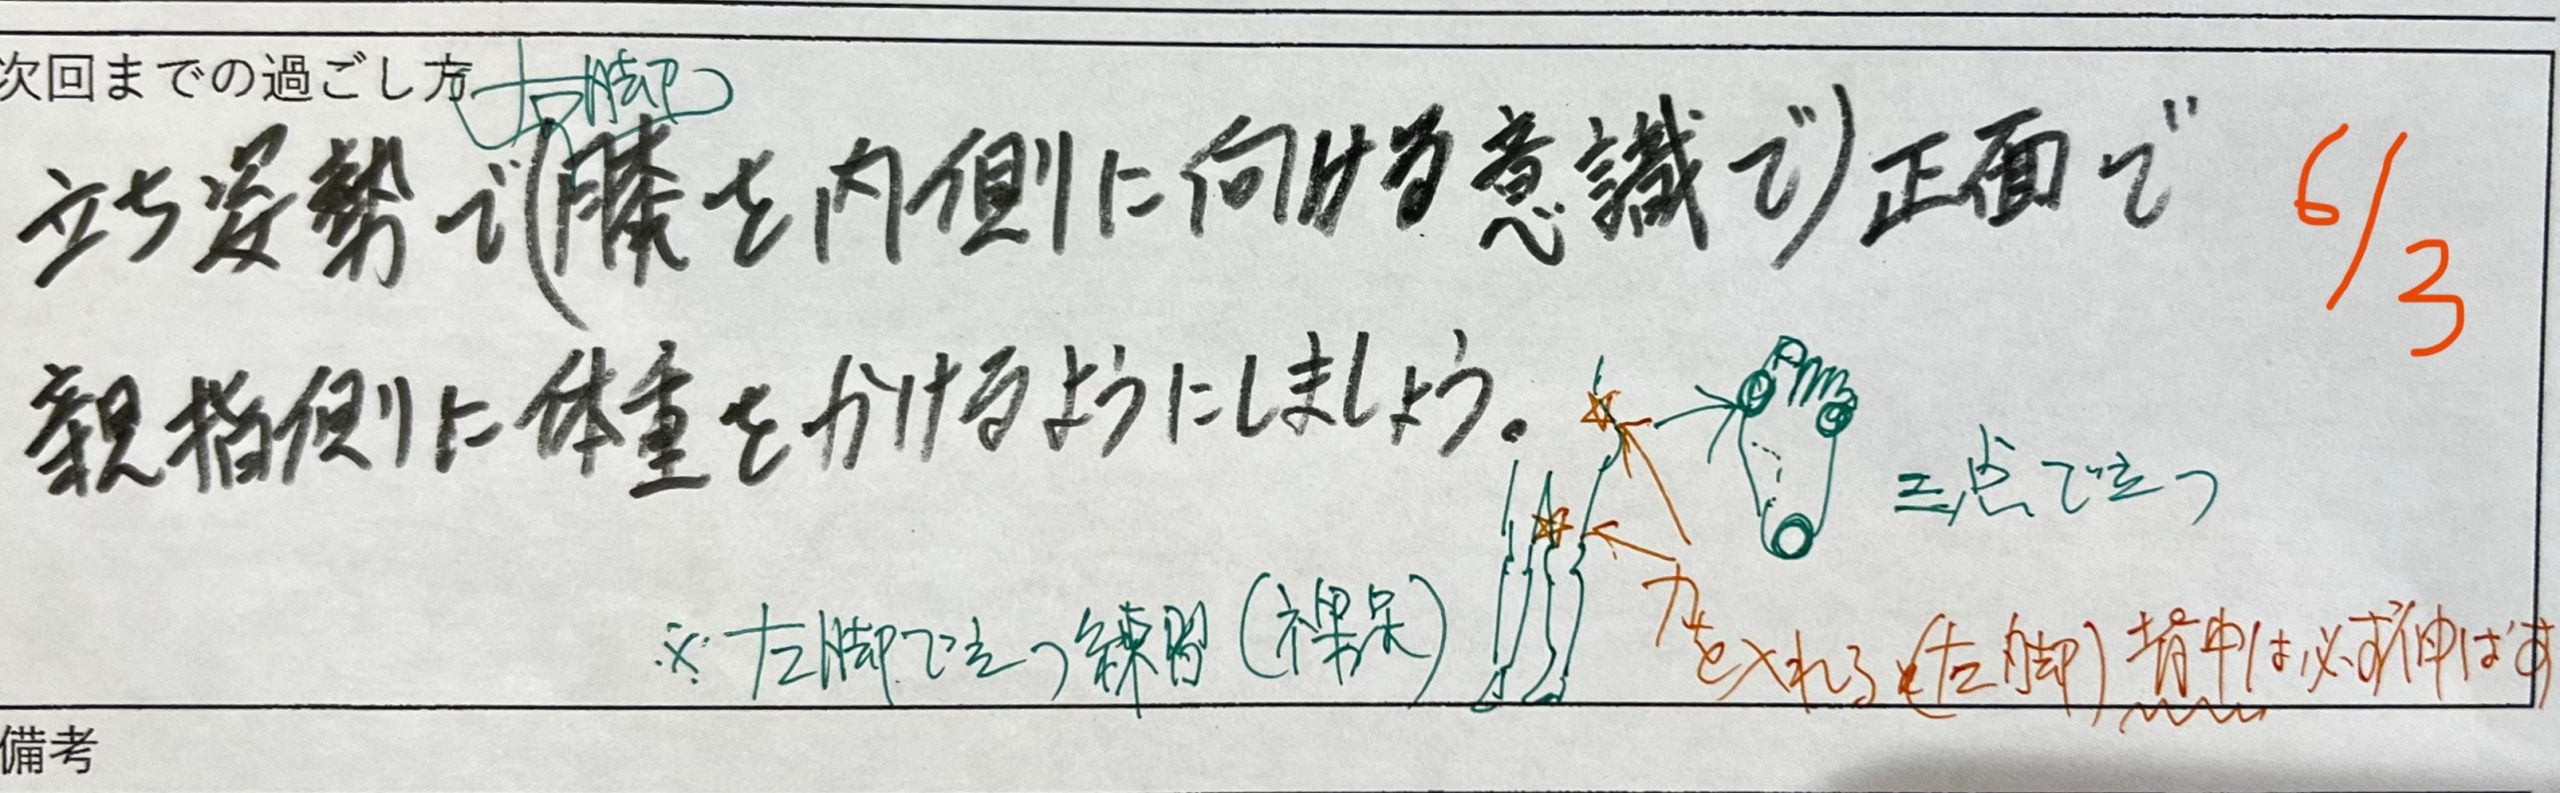 次回までの過ごし方
(右脚)
立ち姿勢で(膝を内側に向ける意識で)正面で
6/3
親指側に体重をかけるようにしましょう。
三点で立つ
※左脚で立つ練習(裸足)
力を入れる(左脚)背中は必ず伸ばす
備考